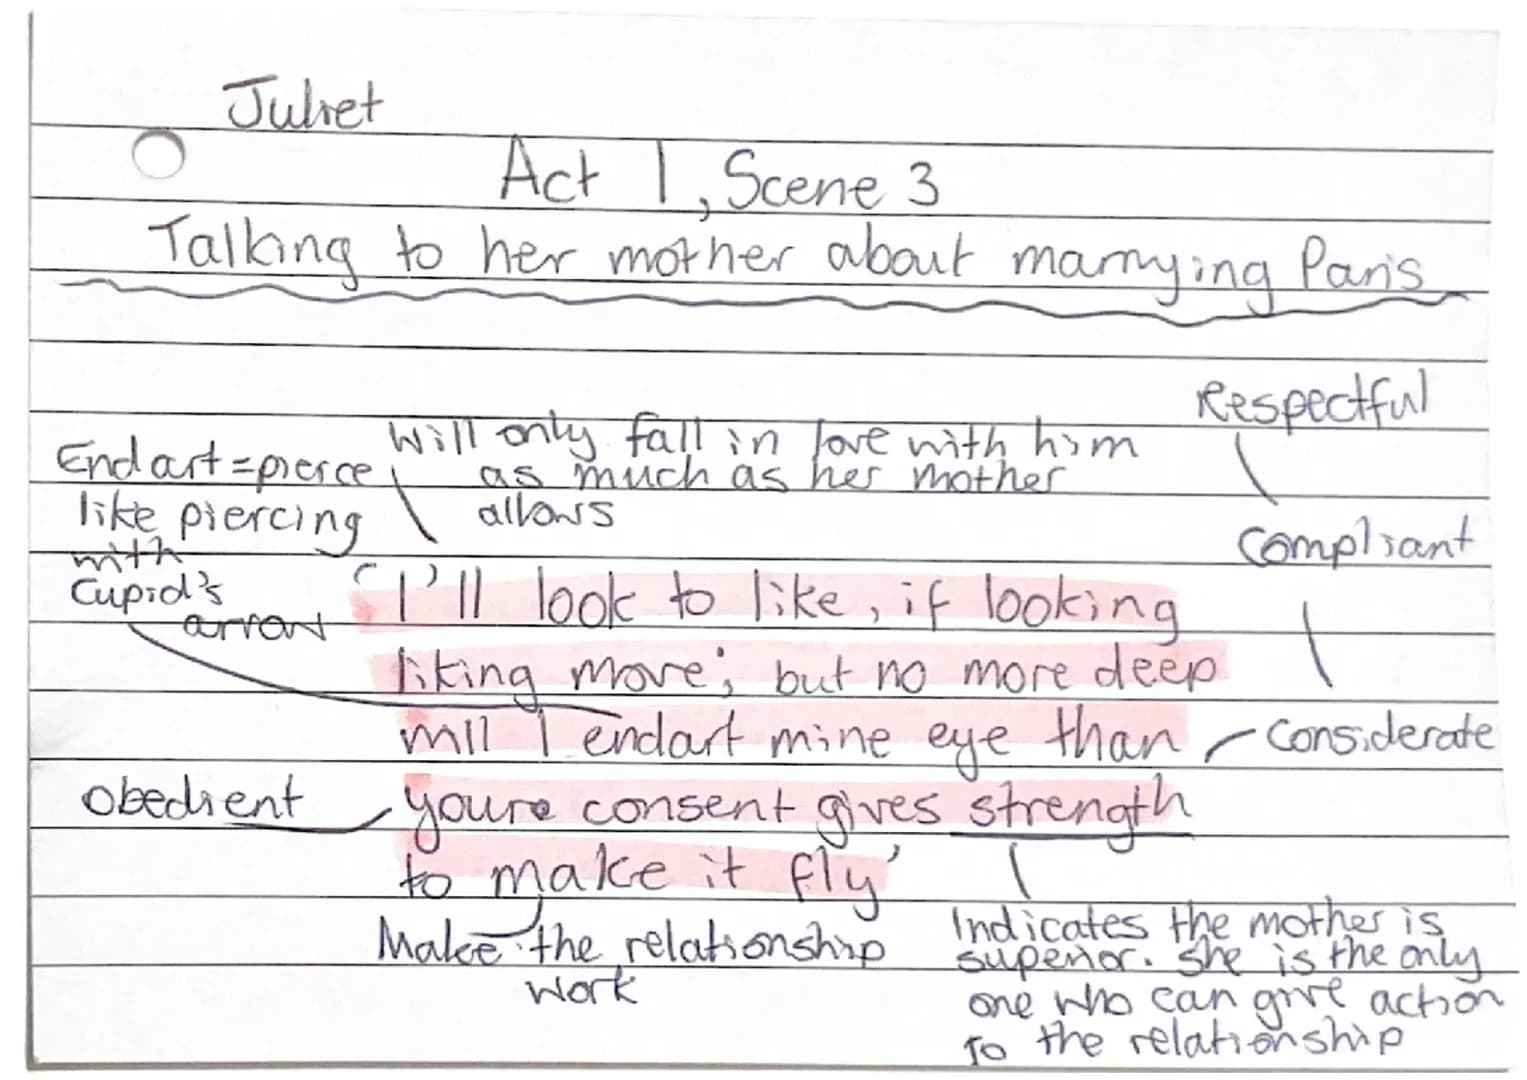 Juliet
Act 1, Scene 3
Talking to her mother about marrying Paris
Respectful
Will only fall in love with him
as much as her mother
allows
Endart = pierce
like piercing
with
Cupid's
arrow
Compliant
'I'll look to like, if looking
liking move; but no more deep
will I endart mine eye than
Considerate
obedient
youre consent gives strength
to make it fly'
Make the relationship
work
Indicates the mother is
superior. She is the only
one who can give action
to the relationship